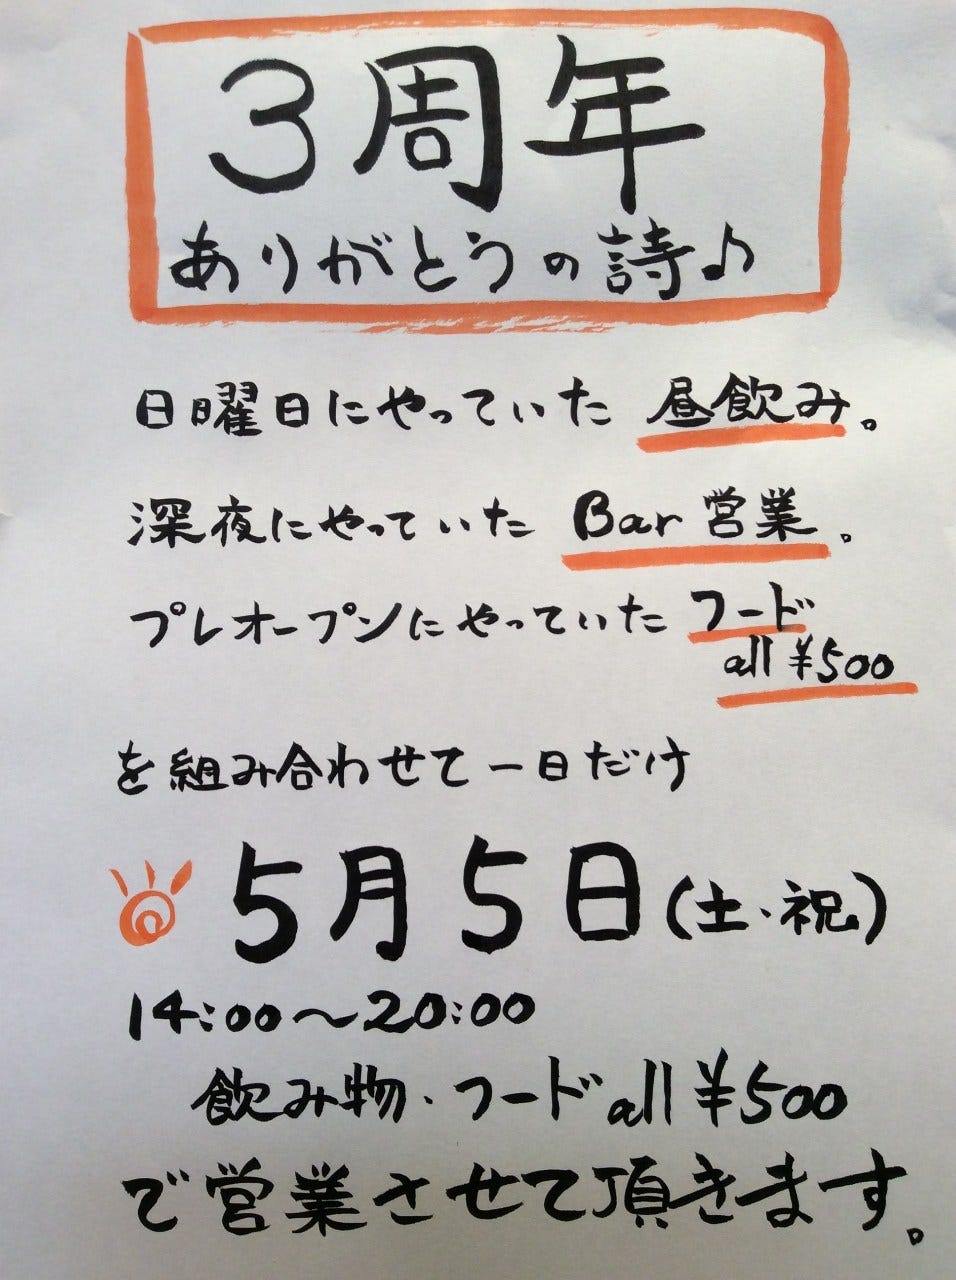 3周年
ありがとうの詩♪
日曜日にやっていた 昼飲み。
深夜にやっていた Bar営業。
プレオープンにやっていた フード
all ¥500
を組み合わせて一日だけ
5月5日(土・祝)
14:00〜20:00
飲み物・フード all ¥500
で営業させて頂きます。